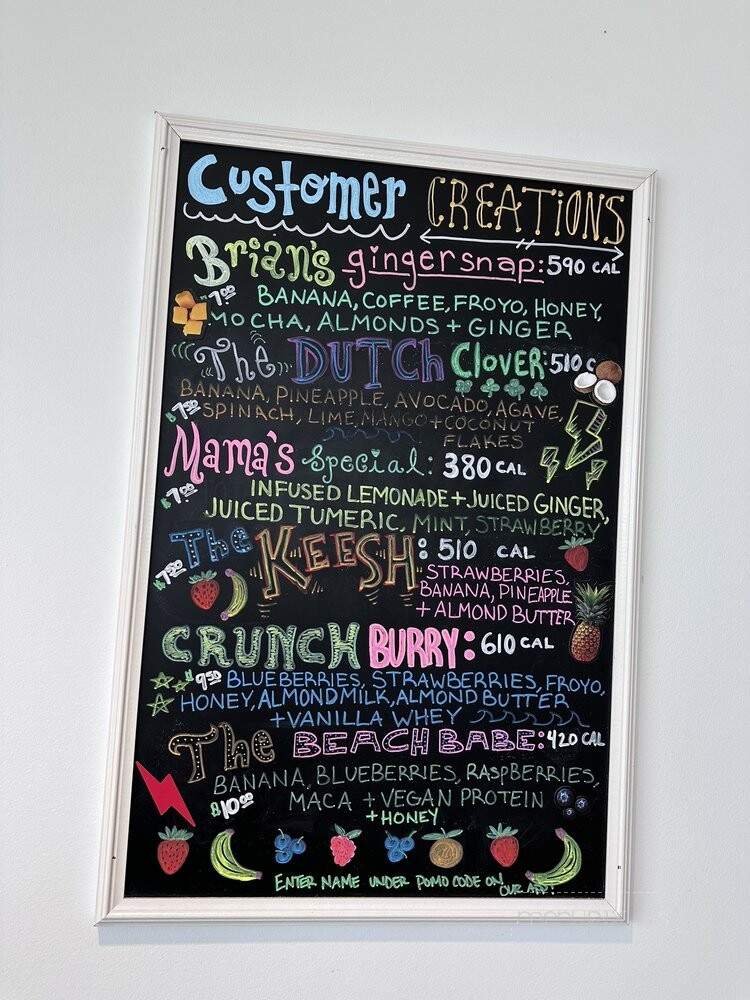 Customer CREATIONS
Brian's gingersnap: 590 CAL
7.00 BANANA, COFFEE, FROYO, HONEY,
MOCHA, ALMONDS + GINGER
The DUTCH Clover: 510 C
BANANA, PINEAPPLE, AVOCADO, AGAVE,
$7.50 SPINACH, LIME, MANGO + COCONUT
FLAKES
Mama's Special: 380 CAL
$7.00 INFUSED LEMONADE + JUICED GINGER,
JUICED TUMERIC, MINT, STRAWBERRY
The KEESH: 510 CAL
$7.50 STRAWBERRIES,
BANANA, PINEAPPLE
+ ALMOND BUTTER
CRUNCH BURRY: 610 CAL
9.50 BLUEBERRIES, STRAWBERRIES, FROYO,
HONEY, ALMONDMILK, ALMOND BUTTER
+ VANILLA WHEY
The BEACH BABE: 420 CAL
BANANA, BLUEBERRIES, RASPBERRIES,
$10.00 MACA + VEGAN PROTEIN
+ HONEY
ENTER NAME UNDER POMO CODE ON
OUR APP!